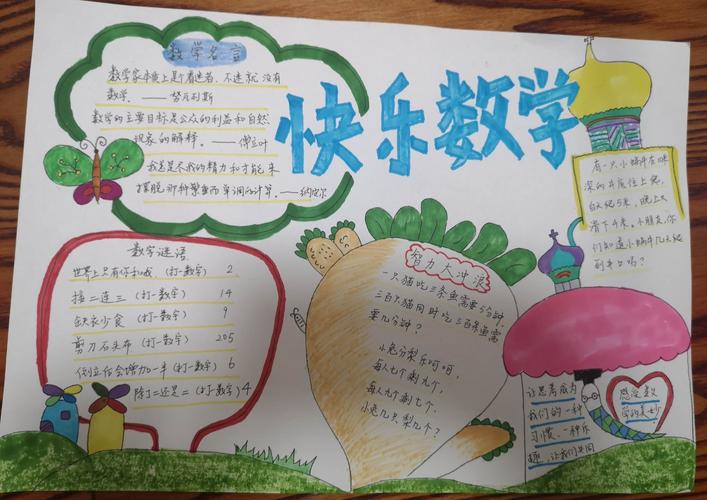 快乐数学
数学名言
数学家本质上是个着迷者,不迷就没有
数学。——努瓦列斯
数学的主要目标是公众的利益和自然
现象的解释。——傅立叶
我总是尽我的精力和才能来
摆脱那种繁重而单调的计算。——纳皮尔
数字谜语
世界上只有你和我(打一数字) 2
接二连三(打一数字) 14
缺衣少食(打一数字) 9
剪刀石头布(打一数字) 205
倒立后会增加一半(打一数字) 6
除了二还是二(打一数字) 4
智力大冲浪
一只猫吃三条鱼需要3分钟,
三百只猫同时吃三百条鱼需
要几分钟?
小兔分梨乐呵呵,
每人七个剩九个,
每人九个剩七个,
小兔几只梨几个?
有一只小蜗牛在
深的井底往上爬,
白天爬5米,晚上又
滑下4米。小朋友,你
们知道小蜗牛几天爬
到井口吗?
让思考成为
我们的一种
习惯、一种乐
趣,让我们共同
感受数
学的美妙